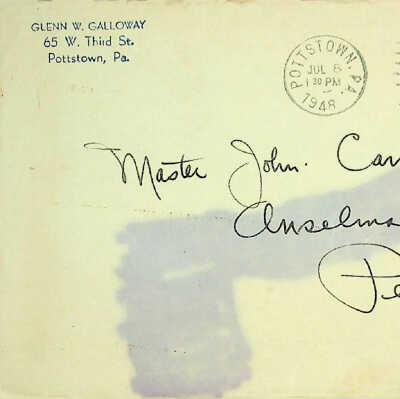 GLENN W. GALLOWAY
65 W. Third St.
Pottstown, Pa.
POTTSTOWN, PA
JUL 8
1 30 PM
1948
Master John. Car
Anselma
Pe